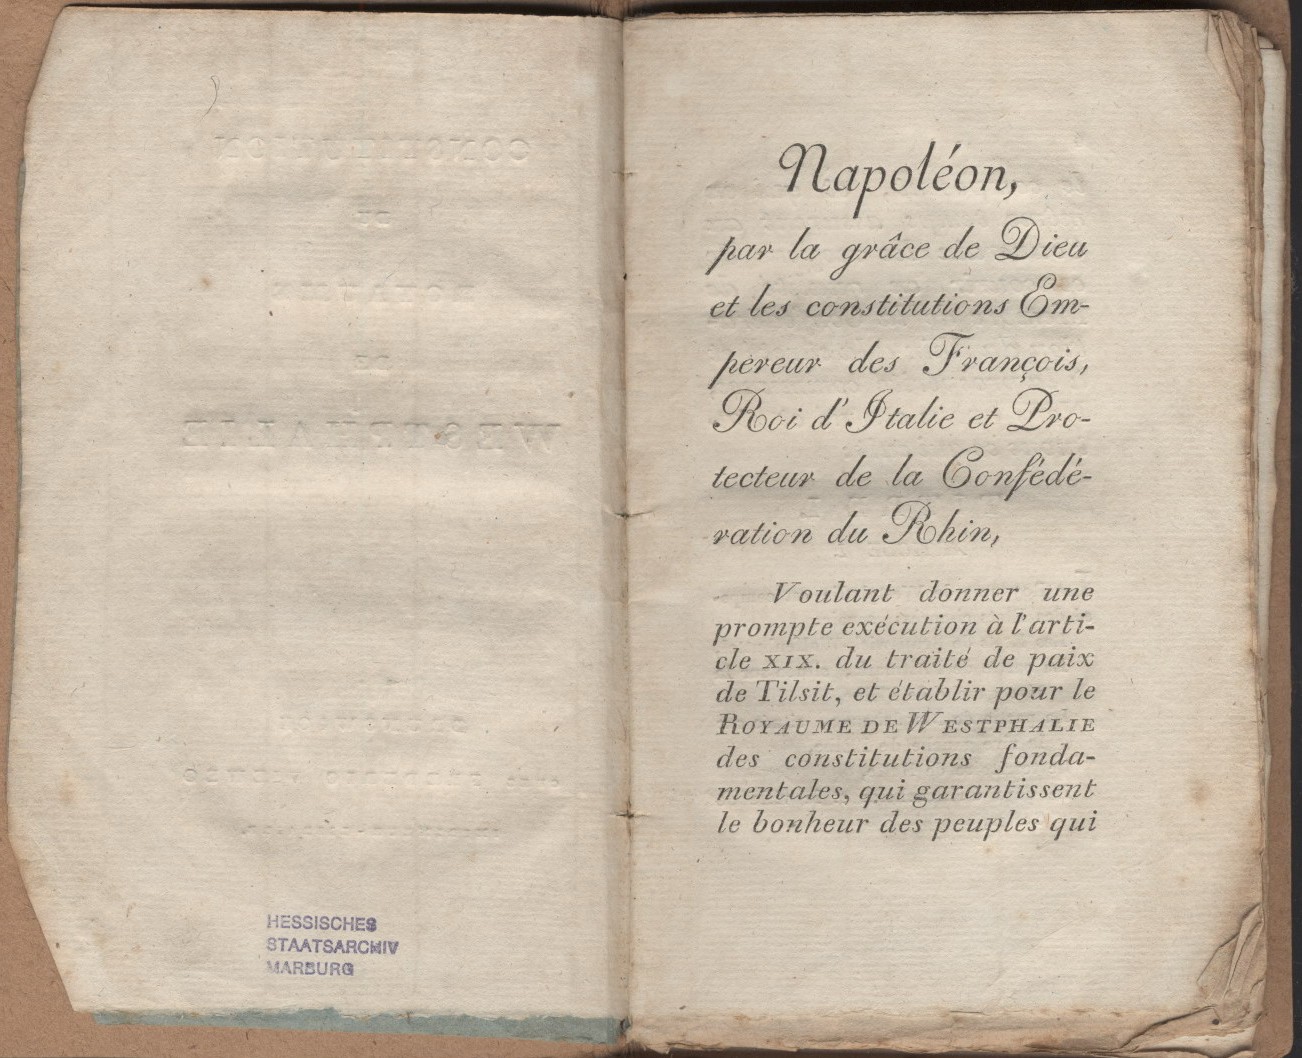 HESSISCHES
STAATSARCHIV
MARBURG
Napoléon,
par la grâce de Dieu
et les constitutions Em-
pereur des François,
Roi d'Italie et Pro-
tecteur de la Confédé-
ration du Rhin,
Voulant donner une
prompte exécution à l'arti-
cle XIX. du traité de paix
de Tilsit, et établir pour le
ROYAUME DE WESTPHALIE
des constitutions fonda-
mentales, qui garantissent
le bonheur des peuples qui